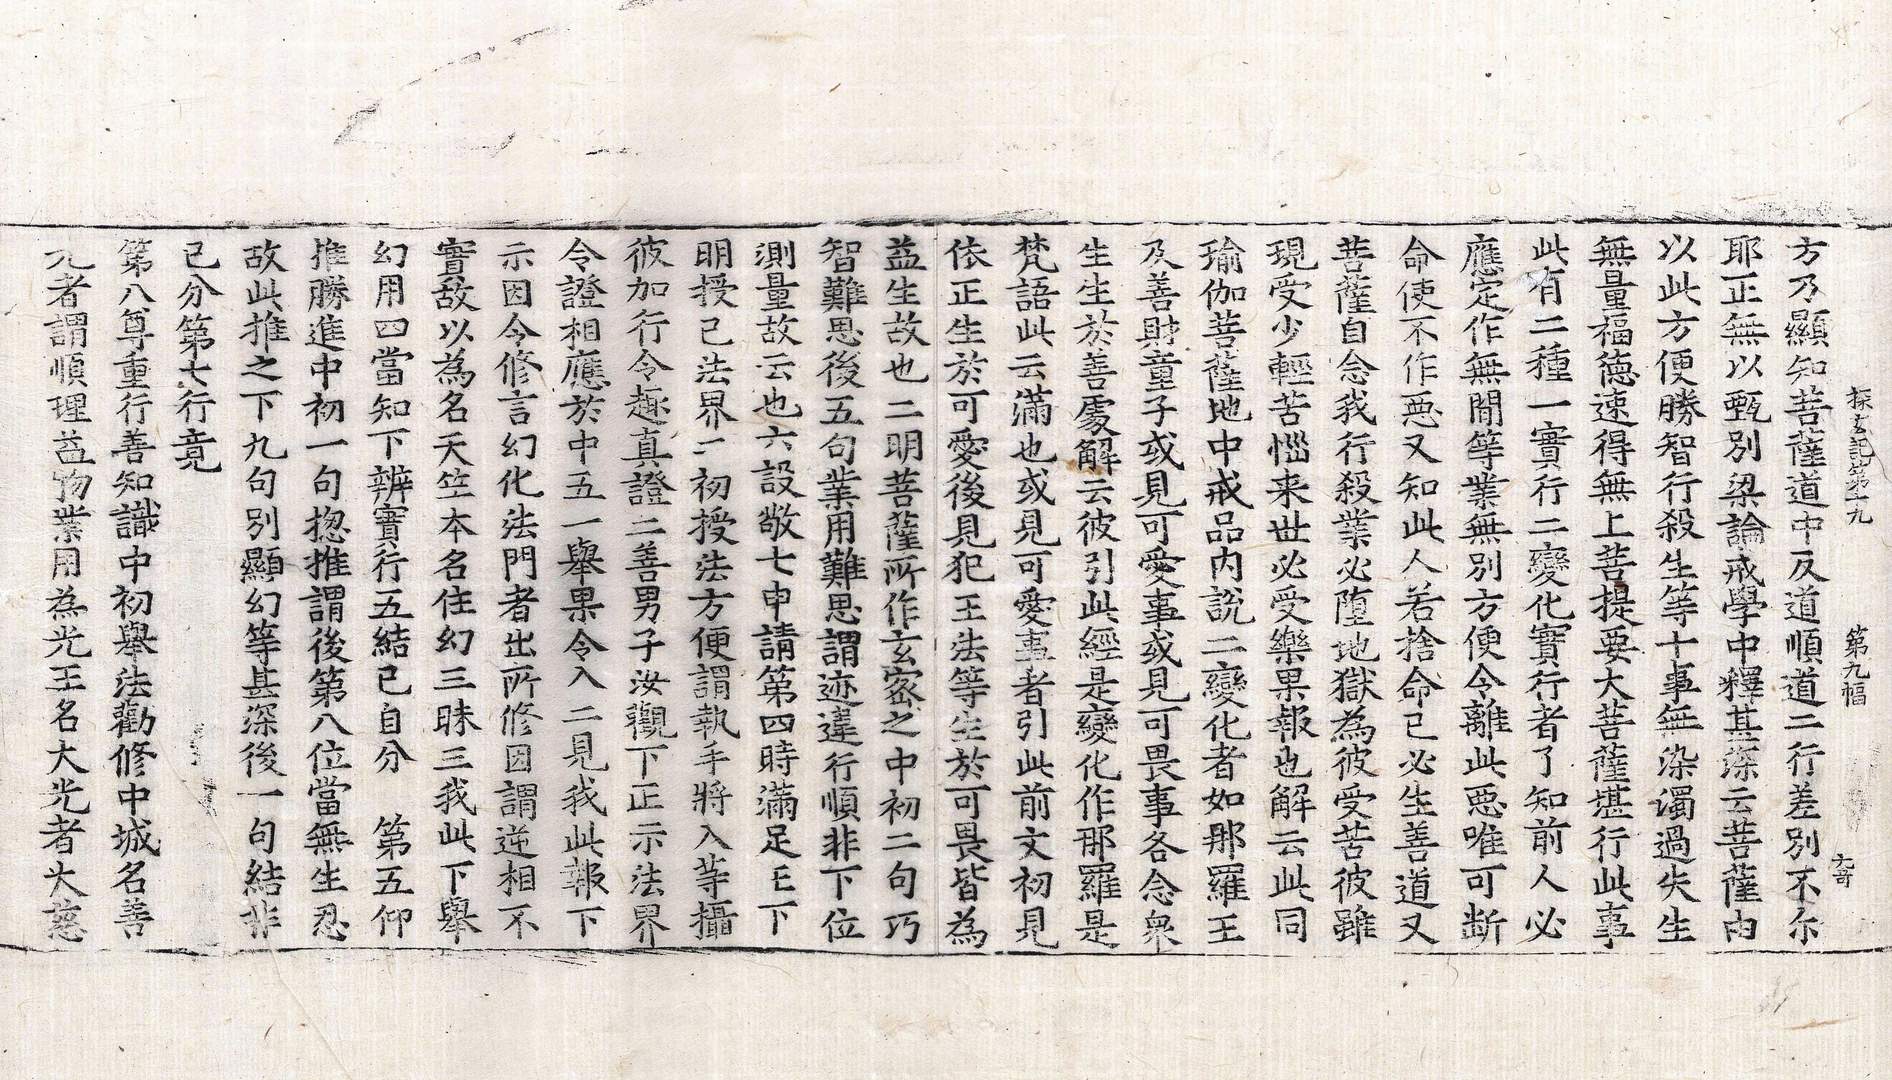 探玄記第十九 第九幅 大哥
方乃顯知菩薩道中反道順道二行差別不尒
耶正無以甄別梁論戒學中釋甚深云菩薩由
以此方便勝智行殺生等十事無染濁過失生
無量福德速得無上菩提要大菩薩堪行此事
此有二種一實行二變化實行者了知前人必
應定作無間等業無別方便令離此惡唯可断
命使不作惡又知此人若捨命已必生善道又
菩薩自念我行殺業必墮地獄為彼受苦彼雖
現受少輕苦惱来世必受樂果報也解云此同
瑜伽菩薩地中戒品内說二變化者如那羅王
及善財童子或見可愛事或見可畏事各念衆
生生於善處解云彼引此經是變化作那羅是
梵語此云滿也或見可愛事者引此前文初見
依正生於可愛後見犯王法等生於可畏皆為
益生故也二明菩薩所作玄密之中初二句巧
智難思後五句業用難思謂迹違行順非下位
測量故云也六設敬七申請第四時滿足已下
明授己法界二初授法方便謂執手將入等攝
彼加行令趣真證二善男子汝觀下正示法界
令證相應於中五一舉果令入二見我此報下
示因令修言幻化法門者出所修因謂逆相不
實敌以為名天竺本名住幻三昧三我此下舉
幻用四當知下辨實行五結已自分 第五仰
推勝進中初一句揔推謂後第八位當無生忍
故此推之下九句別顯幻等甚深後一句結非
己分第七行竟
第八尊重行善知識中初舉法勸修中城名善
光者謂順理益物業用為光王名大光者大慈